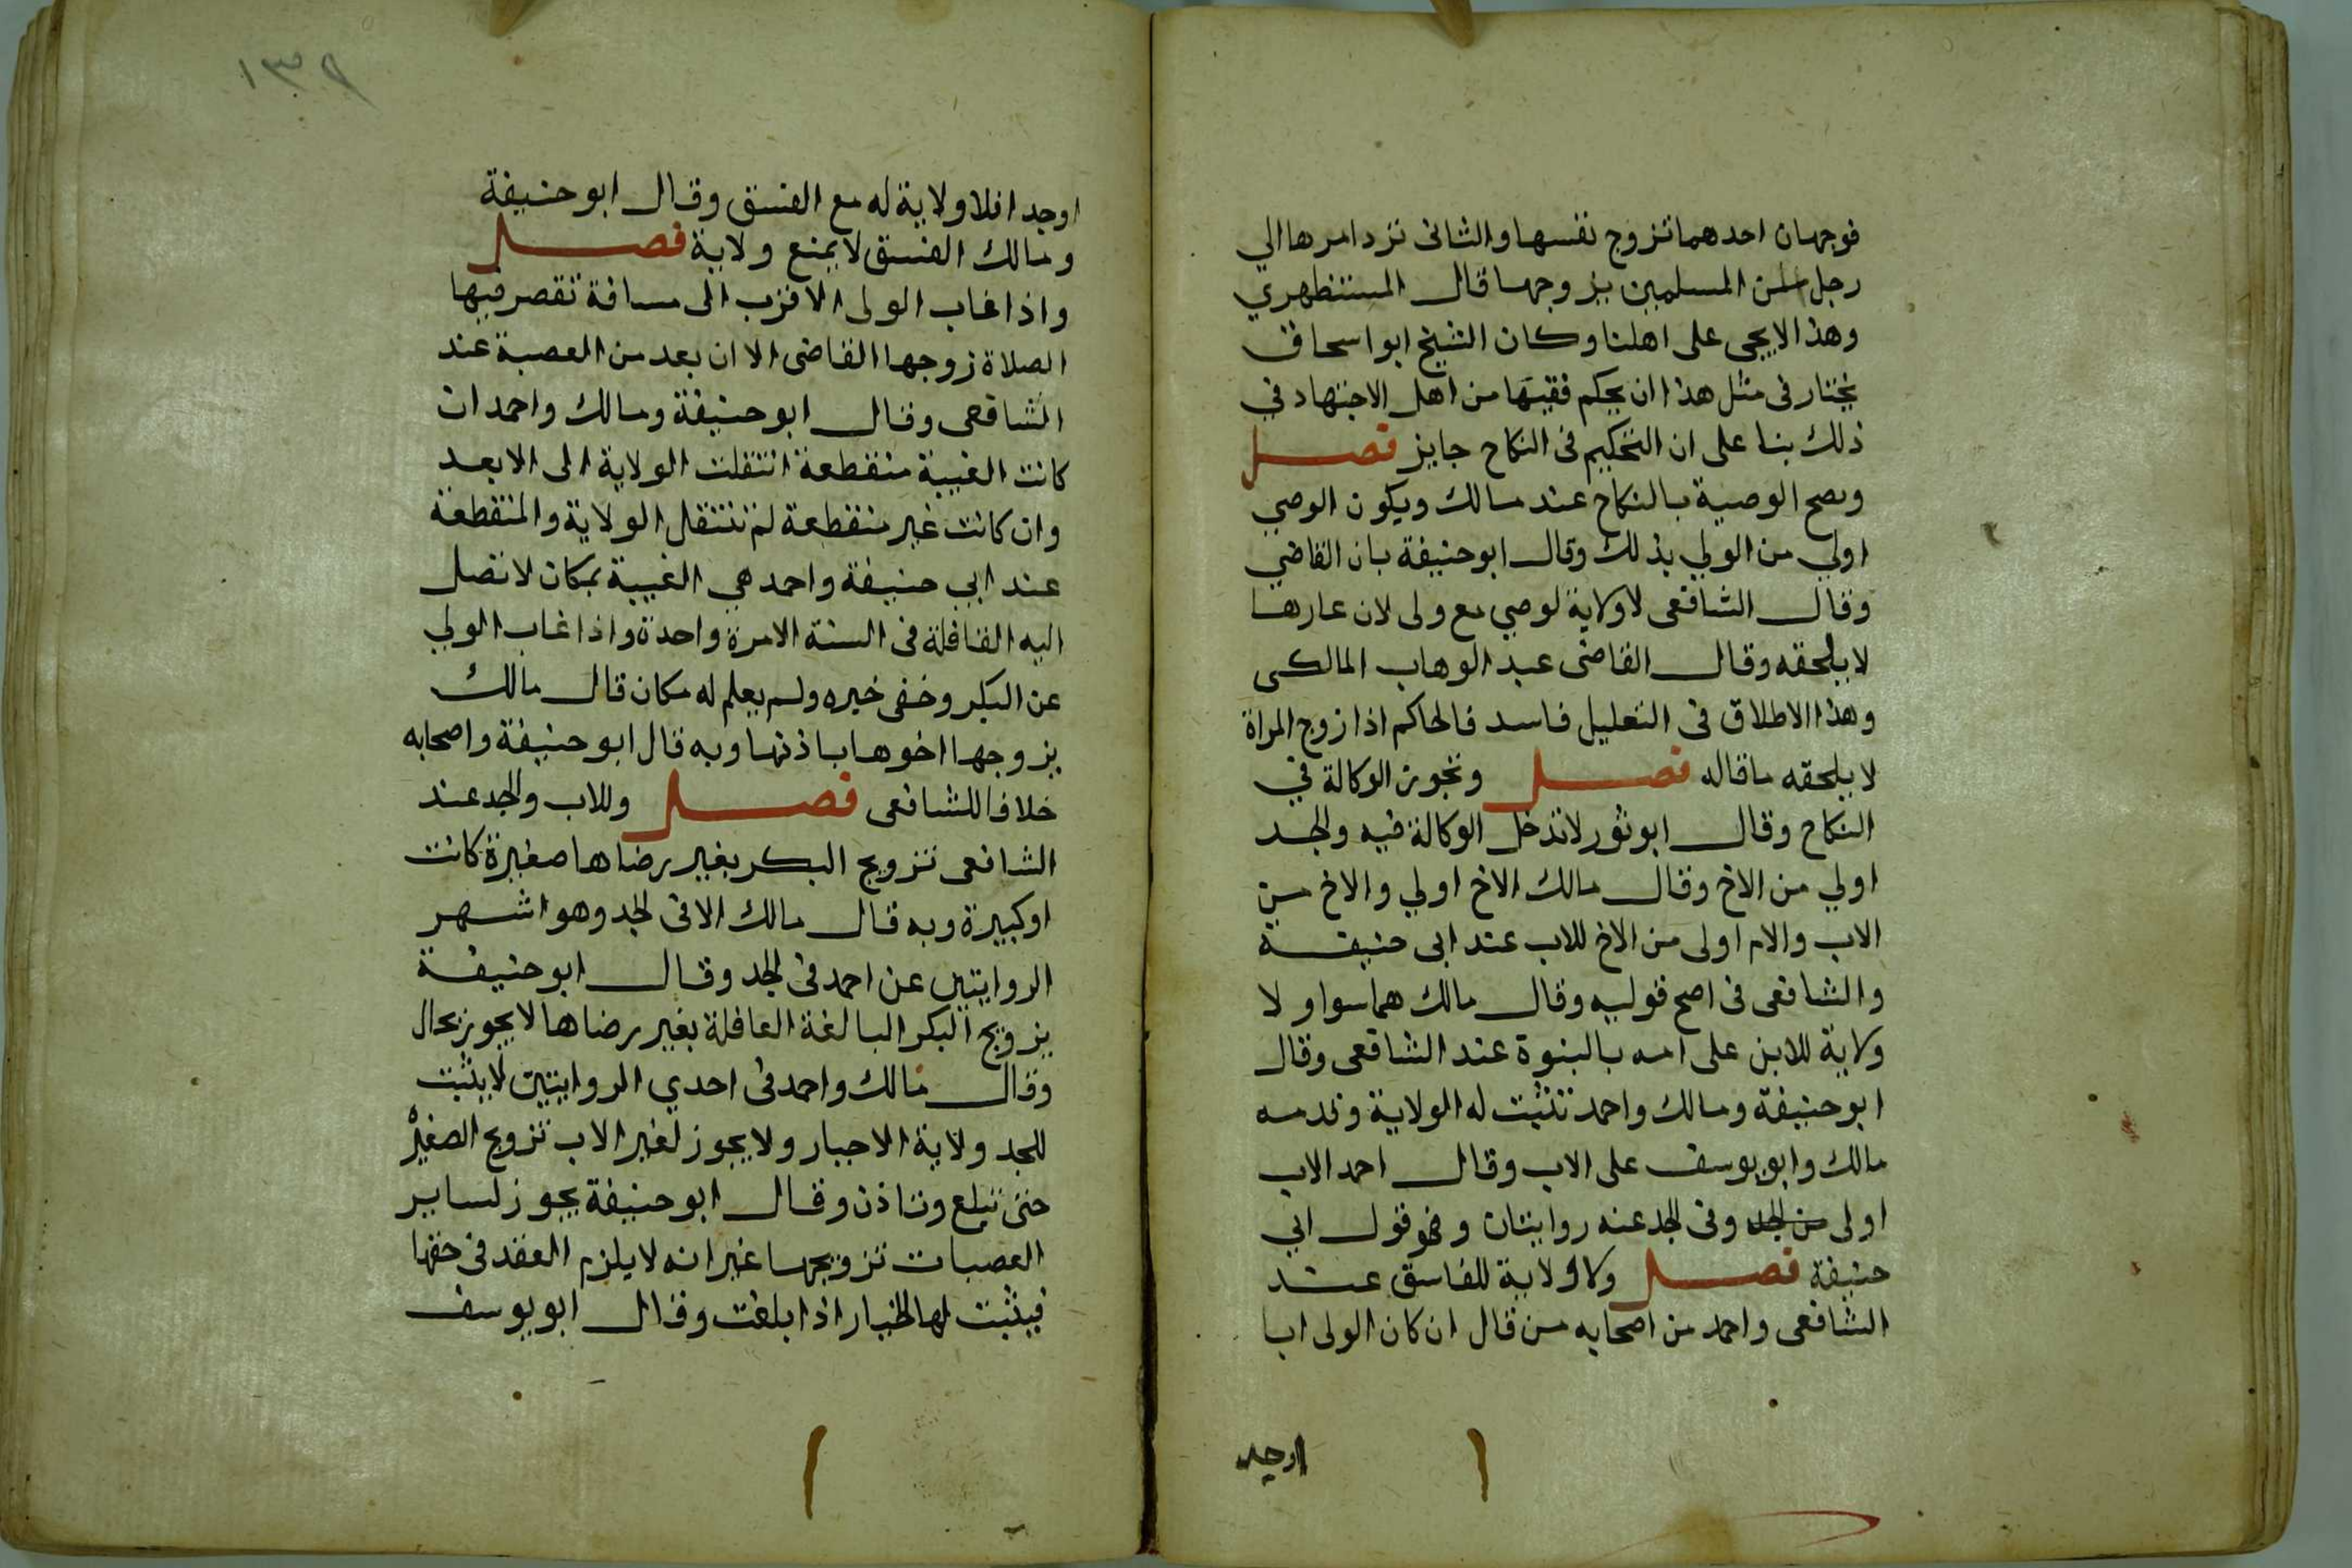 فوجهان احدهما تزوج نفسها والثانى ترد امرها الي
رجل من المسلمين يزوجها قال المستظهري
وهذا لا يجى على اهلنا وكان الشيخ ابواسحاق
يختار فى مثل هذا ان يحكم فقيها من اهل الاجتهاد في
ذلك بنا على ان التحكيم فى النكاح جايز فصل
وتصح الوصية بالنكاح عند مالك ويكون الوصي
اولي من الولي بذلك وقال ابوحنيفة بان القاضي
وقال الشافعى لا ولاية لوصي مع ولى لان عارها
لا يلحقه وقال القاضى عبد الوهاب المالكى
وهذا الاطلاق فى التعليل فاسد فالحاكم اذا زوج المراة
لا يلحقه ما قاله فصل وتجوز الوكالة في
النكاح وقال ابوثور لا تدخل الوكالة فيه والجد
اولي من الاخ وقال مالك الاخ اولي والاخ من
الاب والام اولى من الاخ للاب عند ابى حنيفة
والشافعى فى اصح قوليه وقال مالك هما سوا ولا
ولاية للابن على امه بالبنوة عند الشافعى وقال
ابوحنيفة ومالك واحمد تثبت له الولاية وقدمه
مالك وابويوسف على الاب وقال احمد الاب
اولى من الجد وفى الجد عنه روايتان وهو قول ابي
حنيفة فصل ولا ولاية للفاسق عند
الشافعى واحمد من اصحابه من قال ان كان الولى ابا
اوجد
١٣٩
اوجد افلا ولاية له مع الفسق وقال ابوحنيفة
ومالك الفسق لا يمنع ولاية فصل
واذا غاب الولى الاقرب الى مسافة تقصر فيها
الصلاة زوجها القاضى الا ان بعد من العصبة عند
الشافعى وقال ابوحنيفة ومالك واحمد ان
كانت الغيبة منقطعة انتقلت الولاية الى الابعد
وان كانت غير منقطعة لم تنتقل الولاية والمنقطعة
عند ابي حنيفة واحمد هي الغيبة بمكان لا تصل
اليه القافلة فى السنة الا مرة واحدة واذا غاب الولي
عن البكر وخفى خبره ولم يعلم له مكان قال مالك
يزوجها اخوها باذنها وبه قال ابوحنيفة واصحابه
خلافا للشافعى فصل وللاب والجد عند
الشافعى تزويج البكر بغير رضاها صغيرة كانت
اوكبيرة وبه قال مالك الا فى الجد وهو اشهر
الروايتين عن احمد فى الجد وقال ابوحنيفة
يزويج البكر البالغة العاقلة بغير رضاها لا يجوز بحال
وقال مالك واحمد فى احدي الروايتين لا يثبت
للجد ولاية الاجبار ولا يجوز لغير الاب تزويج الصغيرة
حتى تبلغ وتاذن وقال ابوحنيفة يجوز لساير
العصبات تزويجها غير انه لا يلزم العقد فى حقها
فيثبت لها الخيار اذا بلغت وقال ابويوسف